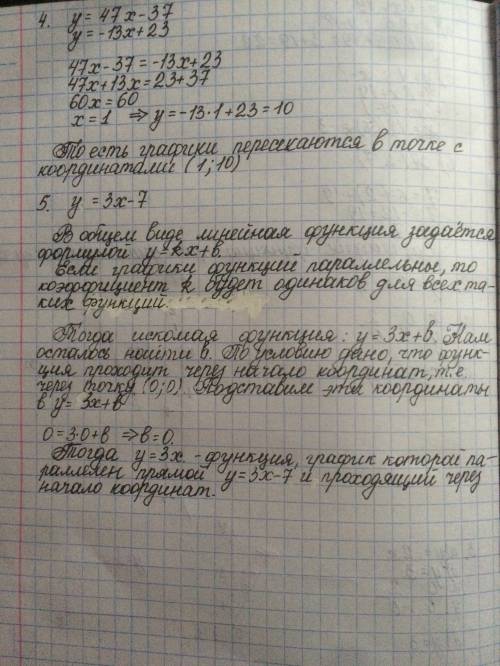 4. y = 47x - 37
y = -13x + 23
47x - 37 = -13x + 23
47x + 13x = 23 + 37
60x = 60
x = 1 ⇒ y = -13·1 + 23 = 10
То есть графики пересекаются в точке с
координатами (1; 10)
5. y = 3x - 7
В общем виде линейная функция задаётся
формулой y = kx + b.
Если графики функций параллельны, то
коэффициент k будет одинаков для всех та-
ких функций.
Тогда искомая функция: y = 3x + b. Нам
осталось найти b. По условию дано, что функ-
ция проходит через начало координат, т.е.
через точку (0; 0). Подставим эти координаты
в y = 3x + b
0 = 3·0 + b ⇒ b = 0.
Тогда y = 3x - функция, график которой па-
раллелен прямой y = 3x - 7 и проходящий через
начало координат.